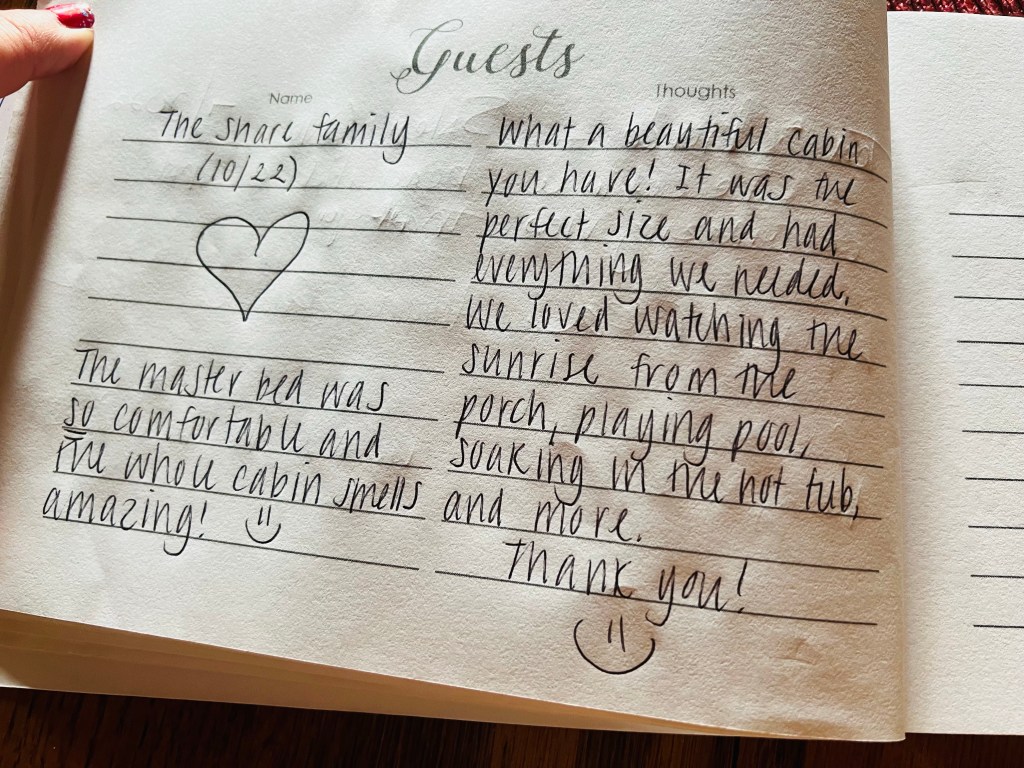 Guests
Name
The Share family
(10/22)
The master bed was
so comfortable and
the whole cabin smells
amazing!
Thoughts
What a beautiful cabin
you have! It was the
perfect size and had
everything we needed.
We loved watching the
sunrise from the
porch, playing pool,
soaking in the hot tub,
and more.
Thank you!